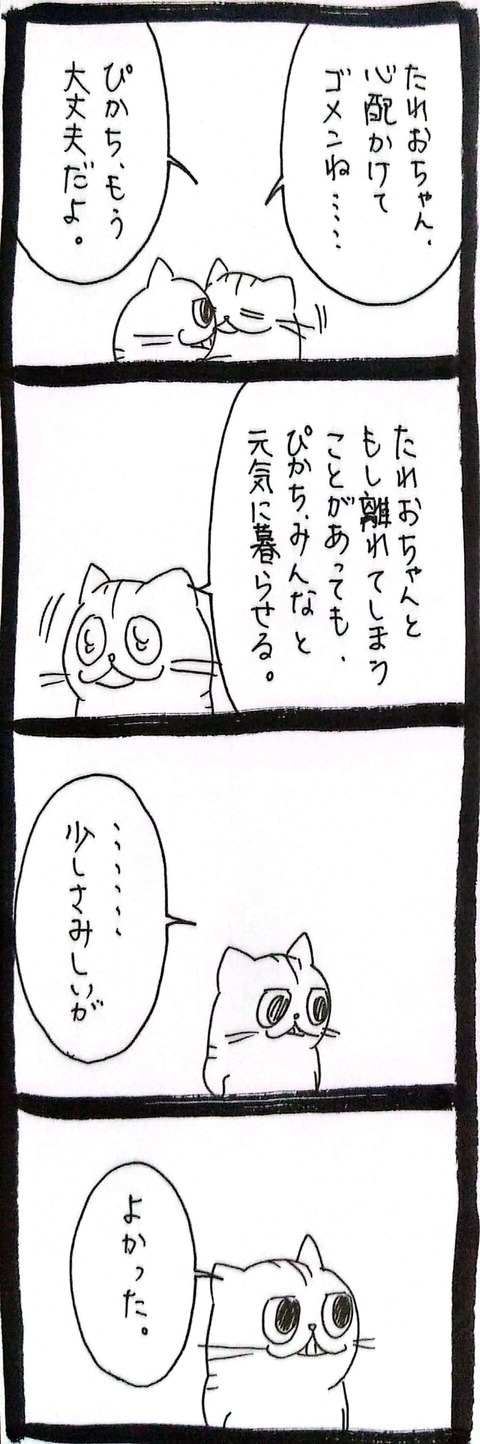 たれおちゃん、
心配かけて
ゴメンね……
ぴかち、もう
大丈夫だよ。
たれおちゃんと
もし離れてしまう
ことがあっても、
ぴかち、みんなと
元気に暮らせる。
、、、、、、、
少しさみしいが
よかった。